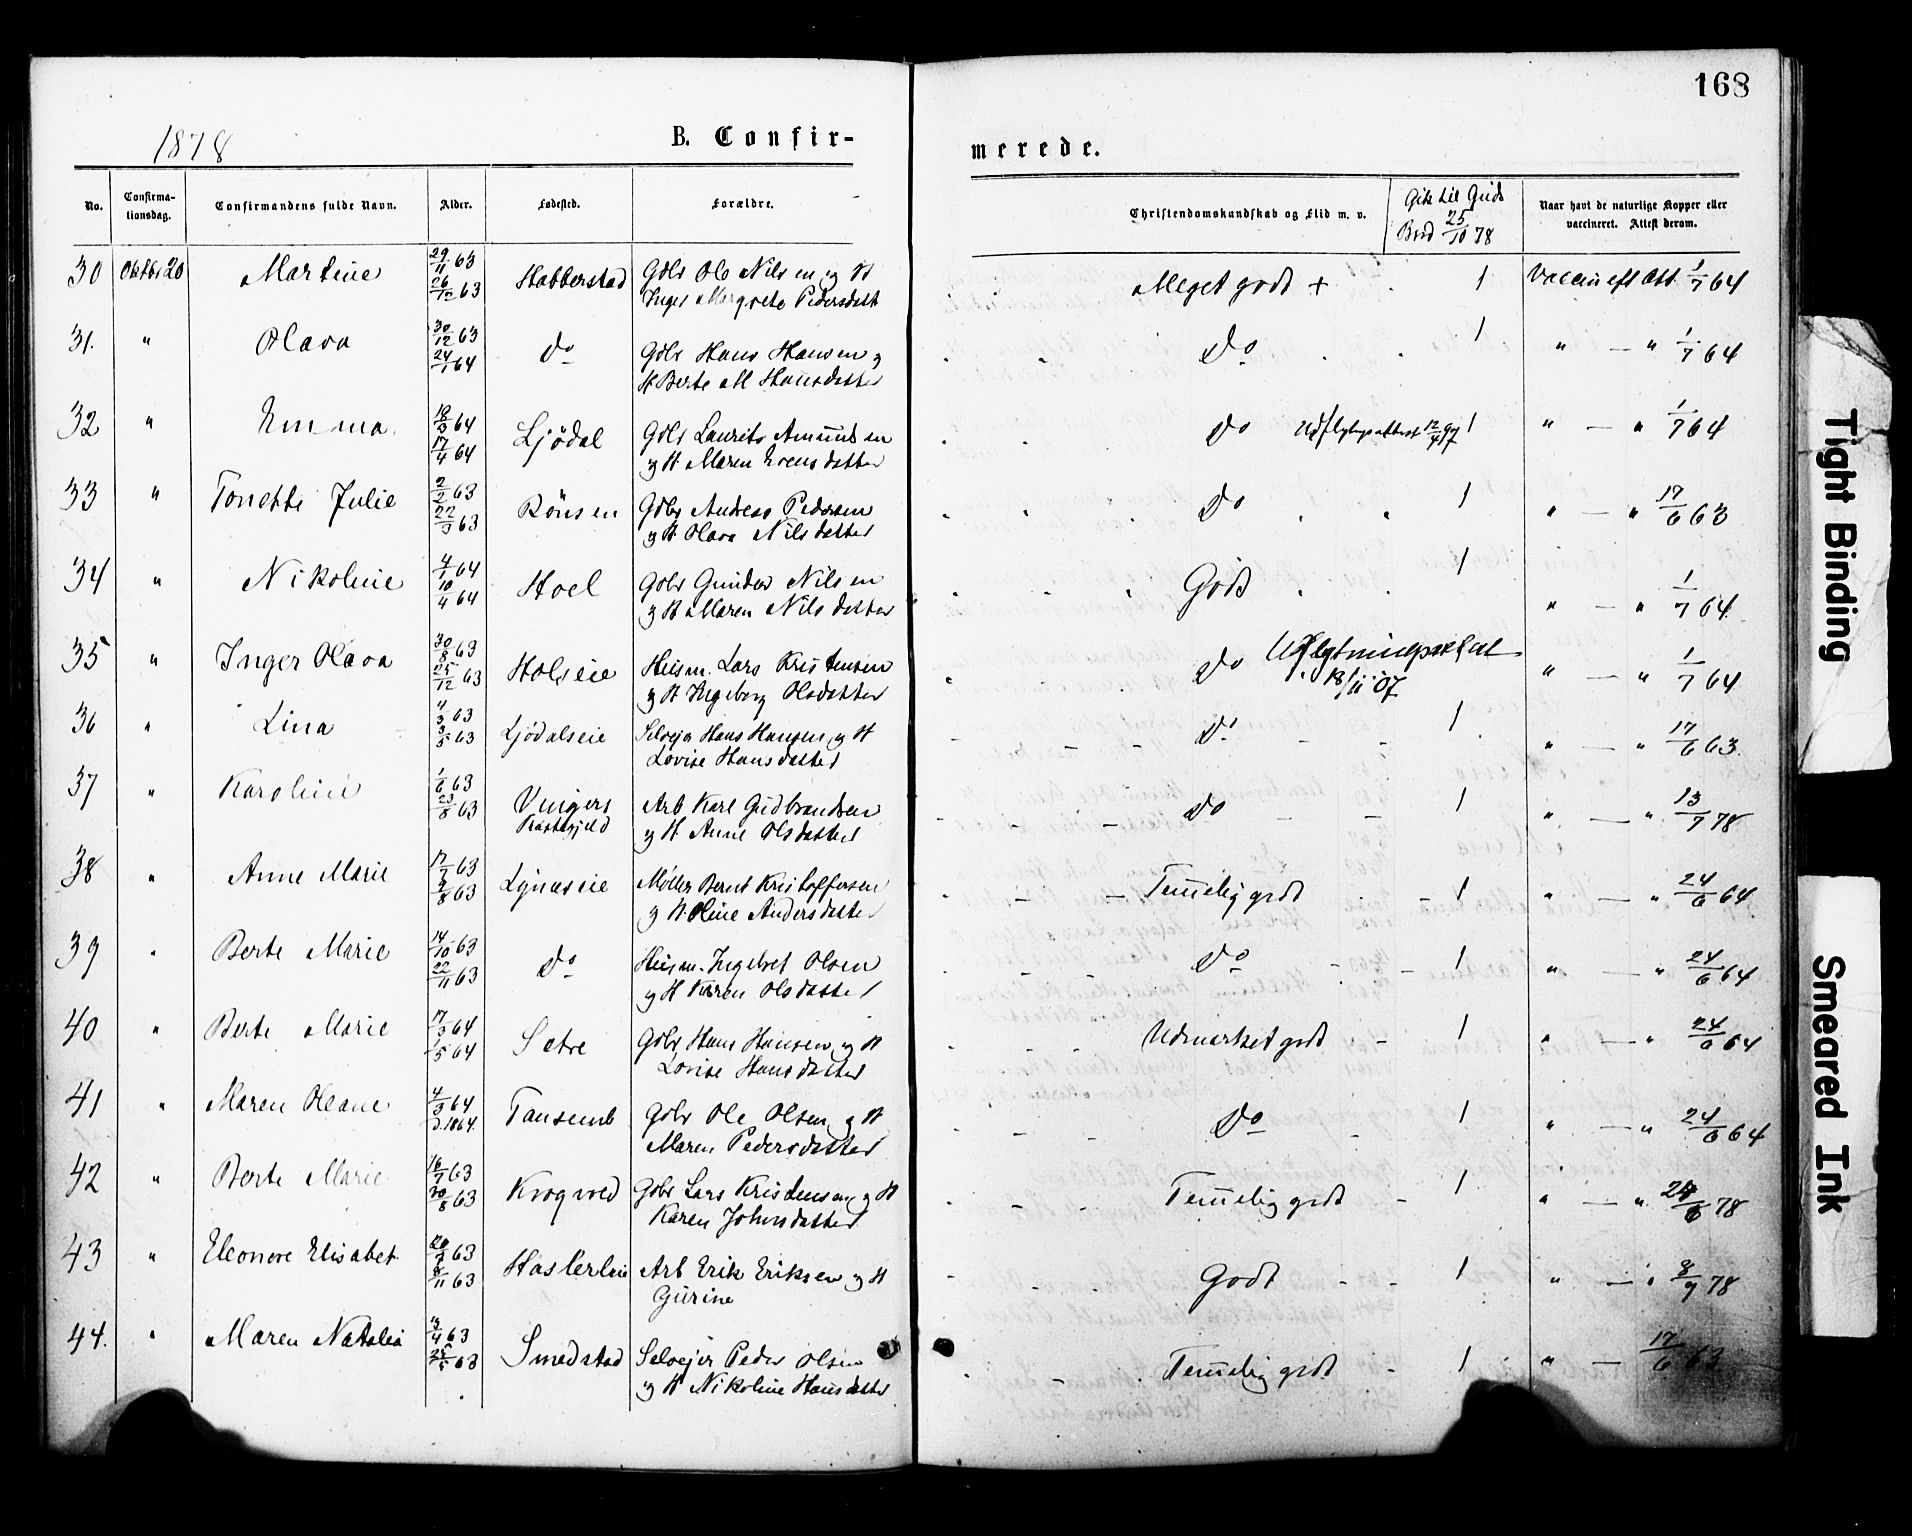 168
1878
B. Confir-
merede.
No.
Confirma-
tionsdag.
Confirmandens fulde Navn.
Alder.
Fødested.
Forældre.
Christendomskundskab og Flid m. v.
Gik til Guds
Bord 25/10 78
Naar havt de naturlige Kopper eller
vaccineret. Attest derom.
30 Oktbr 20 Martine 29/11 63 26/12 63 Habberstad Gdbr Ole Nilsen og H
Inger Margrete Pedersdatt Meget godt + 1 Vaccin eft Att. 1/7 64
31. " Olava 30/12 63 24/1 64 do Gdbr Hans Hansen og
H Berte M Hansdatter do 1 " — " 1/7 64
32 " Emma 18/3 64 17/4 64 Ljödal Gdbr Laurits Amundsen
og H Maren Evensdatter do Udflytngsattest 12/4 97 1 " — " 1/7 64
33 " Tonette Julie 2/2 63 22/3 63 Rönsen Gdbr Andreas Pedersen
og H Olava Nilsdatter do 1 " — " 17/6 63
34 " Nikoline 4/1 64 10/4 64 Hoel Gdbr Gunder Nilsen
og H Maren Nilsdatter Godt 1 " — " 1/7 64
35 " Inger Olava 30/8 63 25/12 63 Holseie Husm. Lars Kristensen
og H Ingeborg Olsdatter do Udflytningsattest
18/11 07 " — " 1/7 64
36 " Lina 4/3 63 3/5 63 Ljödalseie Selvejer Hans Hansen og H
Lovise Hansdatter do 1 " — " 17/6 63.
37 " Karoline 1/6 63 23/8 63 Vingers
Præstegjeld Arb Karl Gudbrandsen
og H Anne Olsdatter do 1 " — " 13/7 78
38 " Anne Marie 17/7 63 9/8 63 Lynæseie Møller Bernt Kristoffersen
og H. Oline Andersdatter Temelig godt 1 " — " 24/6 64
39 " Berte Marie 14/10 63 22/11 63 do Husm. Ingebret Olsen
og H Karen Olsdatter do 1 " — " 24/6 64
40 " Berte Marie 17/3 64 1/5 64 Sætre Gdbr Hans Hansen og H
Lovise Hansdatter Udmerket godt 1 " — " 24/6 64
41 " Maren Oleane 4/3 64 Tansemb Gdbr Ole Olsen og H
Maren Pedersdatter do 1 " — " 24/6 64
42 " Berte Marie 16/7 63 30/8 63 Krogsved Gdbr Lars Kristensen og H
Karen Johnsdatter Temelig godt 1 " — " 24/6 78
43 " Eleonore Elisabet 20/7 63 8/11 63 Haslerleie Arb Erik Eriksen og H
Gurine Godt 1 " — " 8/9 78
44. " Maren Natalia 13/4 63 25/5 63 Smedstad Selvejer Peder Olsen
og H Nikoline Hansdatter Temelig godt 1 " — 17/6 63
Tight Binding
Smeared Ink